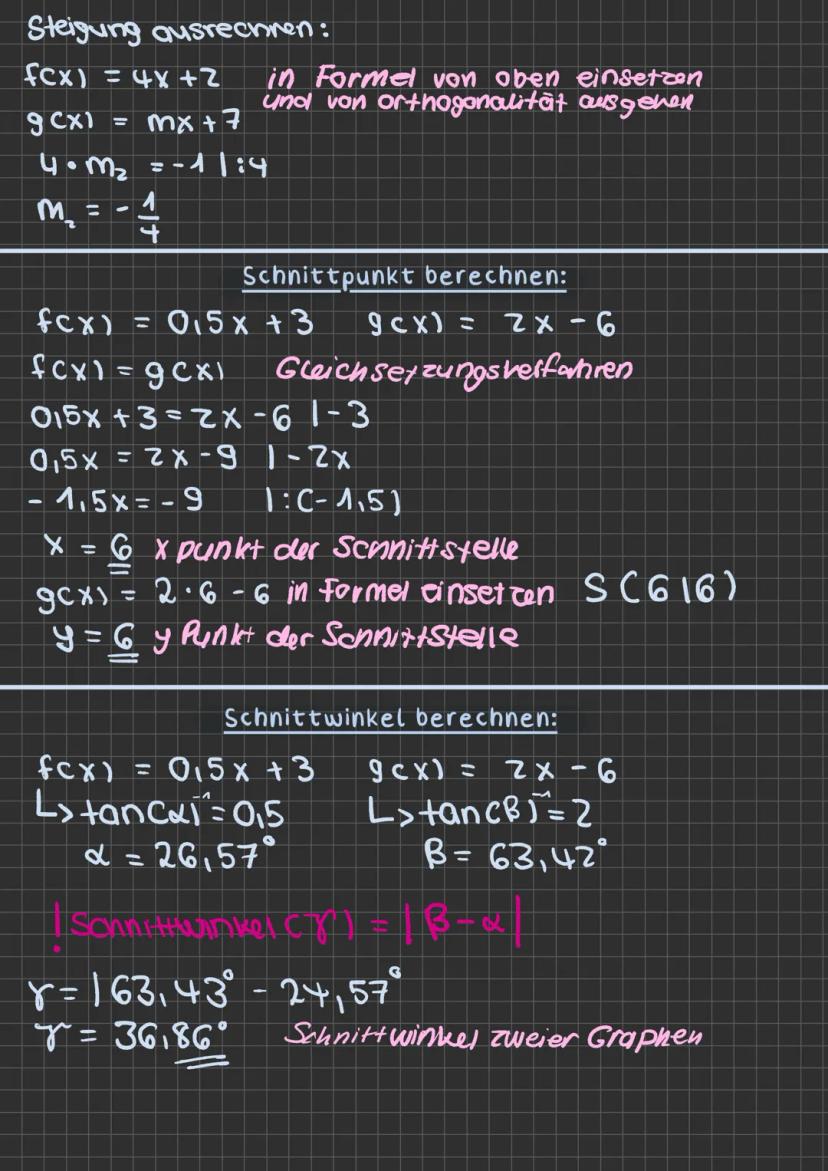 Steigung ausrechnen:
f(x) = 4x + 2 in Formel von oben einsetzen
und von orthogonalität ausgehen
g(x) = mx + 7
4 • m₂ = -1 | :4
m₂ = - 1/4
Schnittpunkt berechnen:
f(x) = 0,5x + 3 g(x) = 2x - 6
f(x) = g(x) Gleichsetzungsverfahren
0,5x + 3 = 2x - 6 | -3
0,5x = 2x - 9 | - 2x
- 1,5x = - 9 | : (-1,5)
x = 6 x punkt der Schnittstelle
g(x) = 2 · 6 - 6 in Formel einsetzen S(6|6)
y = 6 y Punkt der Schnittstelle
Schnittwinkel berechnen:
f(x) = 0,5x + 3 g(x) = 2x - 6
↳ tan(α)⁻¹ = 0,5 ↳ tan(β)⁻¹ = 2
α = 26,57° β = 63,42°
! Schnittwinkel (γ) = | β - α |
γ = | 63,43° - 24,57°
γ = 36,86° Schnittwinkel zweier Graphen